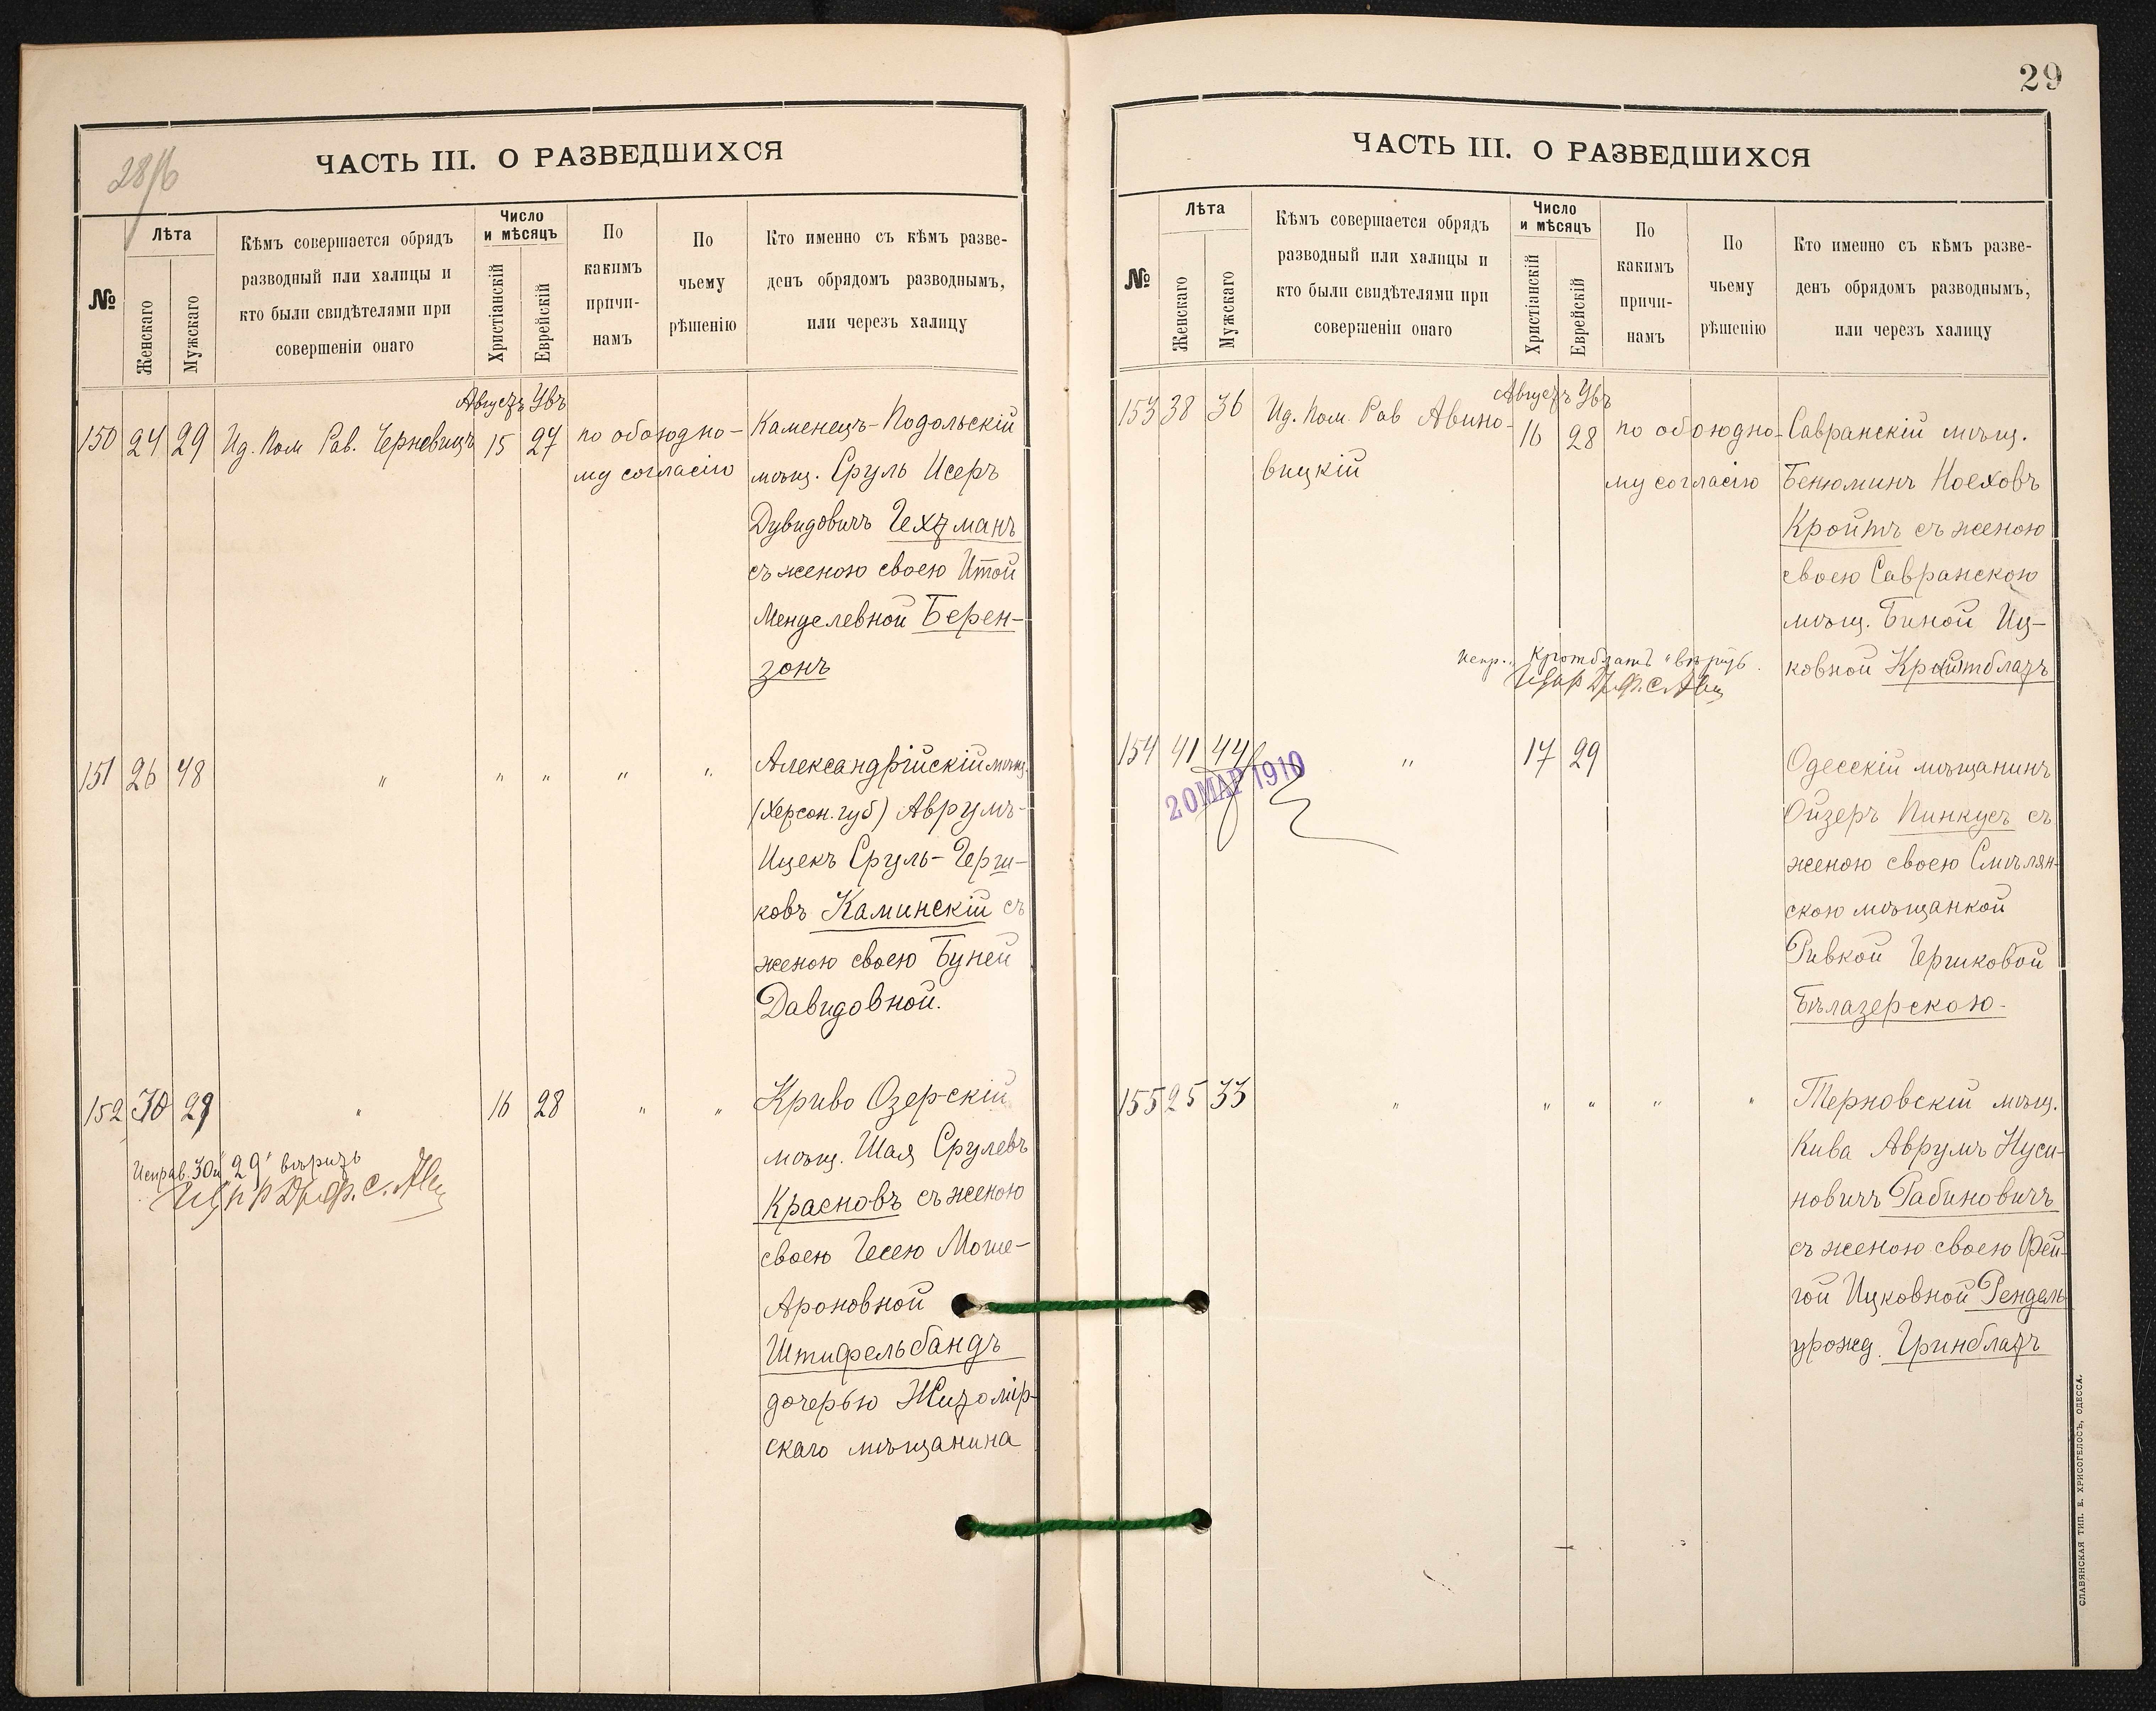 28/б
ЧАСТЬ III. О РАЗВЕДШИХСЯ
№
Лѣта
Женскаго
Мужскаго
Кѣмъ совершается обрядъ
разводный или халицы и
кто были свидѣтелями при
совершеніи онаго
Число
и мѣсяцъ
Христіанскій
Еврейскій
По
какимъ
причи-
намъ
По
чьему
рѣшенію
Кто именно съ кѣмъ разве-
денъ обрядомъ разводнымъ,
или черезъ халицу
Августъ Увъ
150 24 29 Ид. Пом Рав. Черновицъ 15 27 по обоюдно- Каменецъ-Подольскій
му согласію мѣщ. Сруль Исеръ
Дувидовичъ Гехтманъ
съ женою своею Итой
Менделевной Берен-
зонъ
151 26 48 " " " " " Александрійскій мѣщ.
(Херсон. губ) Аврумъ-
Ицекъ Сруль-Герш-
ковъ Каминскій съ
женою своею Буней
Давидовной.
152 30 29 " 16 28 " " Криво Озерскій
мѣщ. Шая Срулевъ
Исправ. 30 и "29" вѣрить
Красновъ съ женою
своею Гесею Моше-
Ароновной
Штифельбандъ
дочерью Житомір-
скаго мѣщанина
29
ЧАСТЬ III. О РАЗВЕДШИХСЯ
№
Лѣта
Женскаго
Мужскаго
Кѣмъ совершается обрядъ
разводный или халицы и
кто были свидѣтелями при
совершеніи онаго
Число
и мѣсяцъ
Христіанскій
Еврейскій
По
какимъ
причи-
намъ
По
чьему
рѣшенію
Кто именно съ кѣмъ разве-
денъ обрядомъ разводнымъ,
или черезъ халицу
Августъ Увъ
153 38 36 Ид. Пом. Рав Авино- 16 28 по обоюдно- Савранскій мѣщ.
вицкій му согласію Бенюминъ Ноеховъ
Кройтъ съ женою
своею Савранскою
мѣщ. Биной Иц-
ковной Кройтблатъ
154 41 44 " 17 29 Одесскій мѣщанинъ
20 МАР 1910
Ойзеръ Пинкусъ съ
женою своею Смѣлян-
скою мѣщанкой
Ривкой Гершковой
Бѣлазерскою.
155 25 33 " " " " " Терновскій мѣщ.
Кива Аврумъ Нуси-
новичъ Рабиновичъ
съ женою своею Фей-
гой Ицковной Рендель
урожд. Гринблатъ
СЛАВЯНСКАЯ ТИП. Е. ХРИСОГЕЛОСЪ, ОДЕССА.